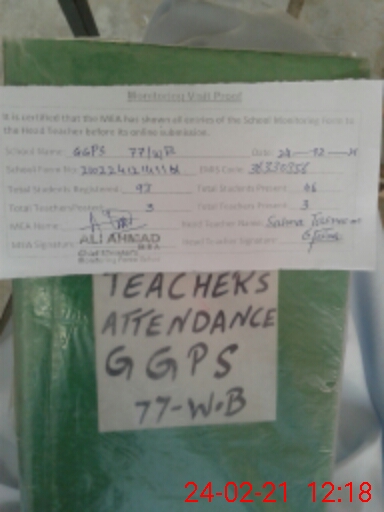 Monitoring Visit Proof
It is certified that the MEA has shown all entries of the School Monitoring Form to
the Head Teacher before its online submission.
School Name: GGPS 77/WB Date: 24-02-21
School Form No: EMIS Code:
Total Students Registered: 93 Total Students Present:
Total Teachers 3 Total Teachers Present: 3
MEA Name: Head Teacher Name: Salma
MEA Signature: ALI AHMAD Head Teacher Signature:
MEA
TEACHERS
ATTENDANCE
GGPS
77-W.B
24-02-21 12:18